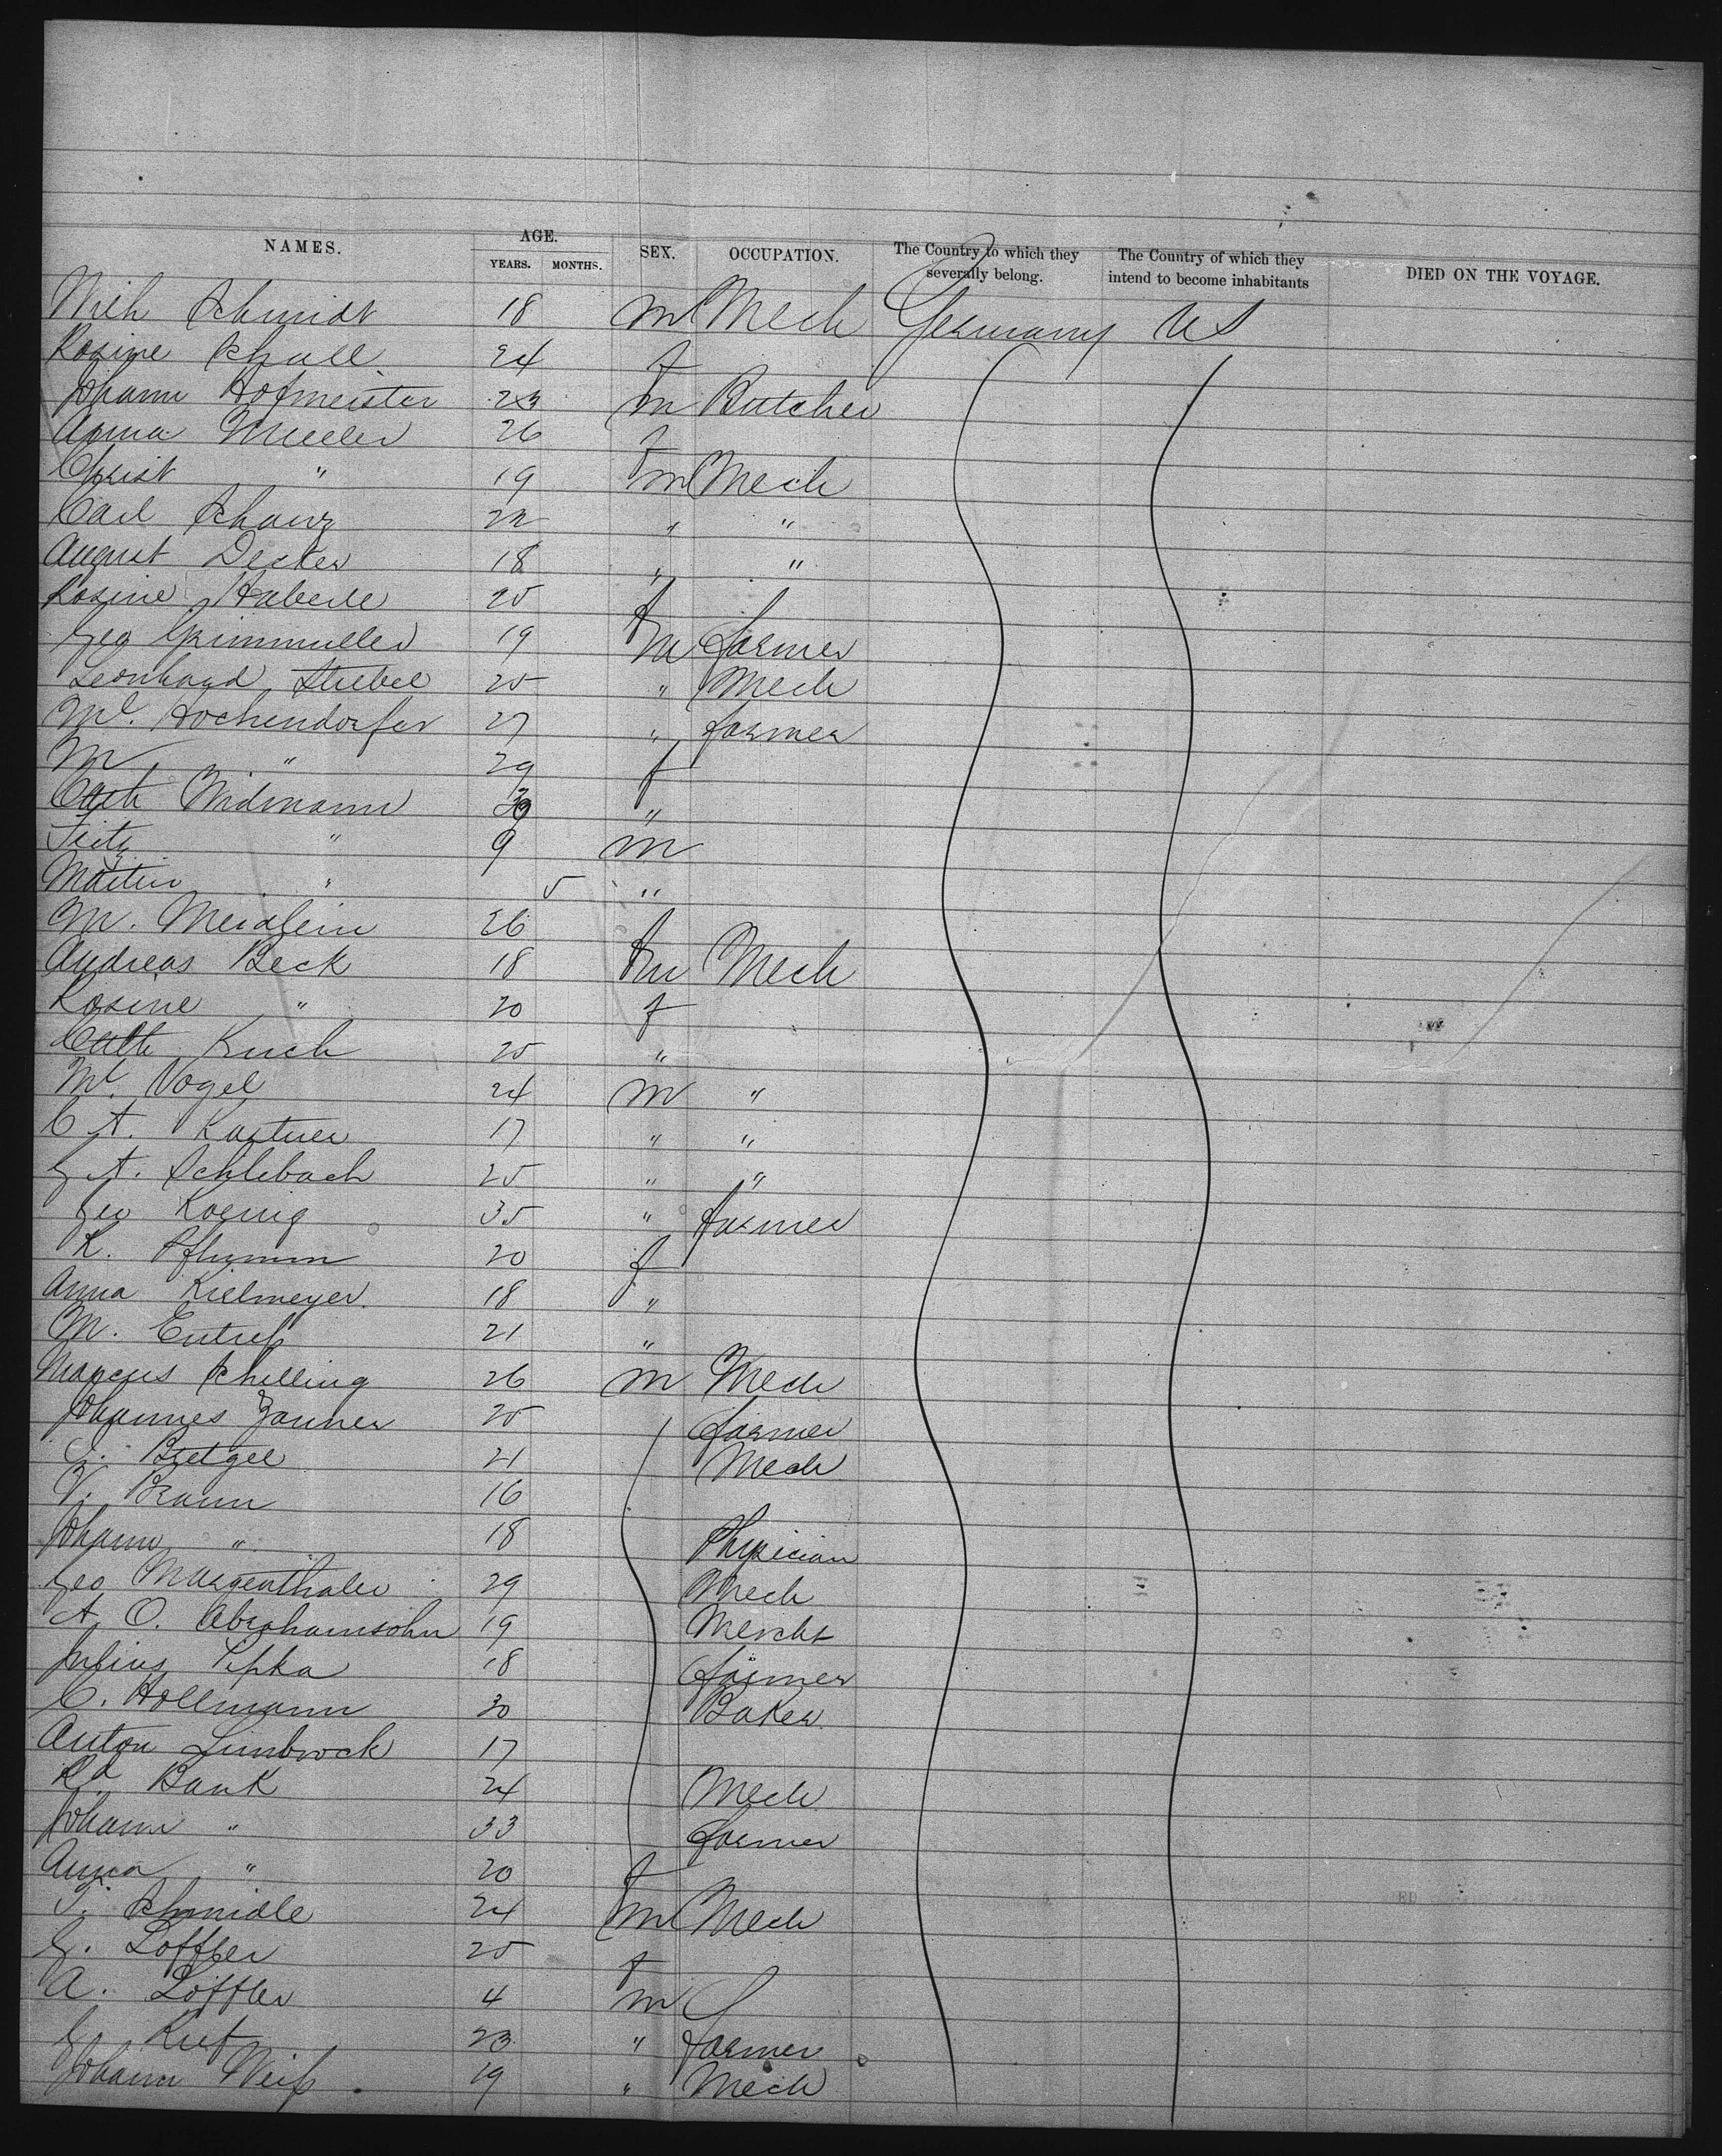 NAMES. AGE. SEX. OCCUPATION. The Country to which they severally belong. The Country of which they intend to become inhabitants DIED ON THE VOYAGE.
YEARS. MONTHS.
Mich Schmidt 18 m Mech Germany US
Rosine Schall 24 f
Johann Hofmeister 23 m Butcher
Anna Mueller 26 f
Christ " 19 m Mech
Carl Schanz 22 " "
August Decker 18 " "
Rosine Haberle 25 f
Geo Grimmuller 19 m farmer
Leonhard Striebel 25 " Mech
Ml. Hochendorfer 27 " farmer
M " 29 f
Cath Widmann 39 "
Fritz " 9 m
Martin " 5 "
M. 26 f
Andreas Beck 18 m Mech
Rosine " 20 f
Cath Kuch 25 "
Ml. Vogel 24 m "
C A. Kastner 17 " "
G A. Schlebach 25 " "
Geo Koenig 35 " farmer
K. Pflumm 20 f
Anna Kielmeyer 18 "
M. 21 "
Marcus Schilling 26 m Mech
Johannes Zanner 25 farmer
Bretzel 21 Mech
V. Braun 16
Johann " 18 Physician
Geo Margenthaler 29 Mech
A. O. Abrahamsohn 19 Mercht
Julius Lipka 18 farmer
C. Hollmann 30 Baker
Anton Limbrock 17
Rd. Bank 24 Mech
Johann " 33 farmer
Anna " 20 f
T. Schmidle 24 m Mech
G. Loffler 25 f
A. Löffler 4 m
G. 23 " farmer
Johann Weiß 19 " Mech